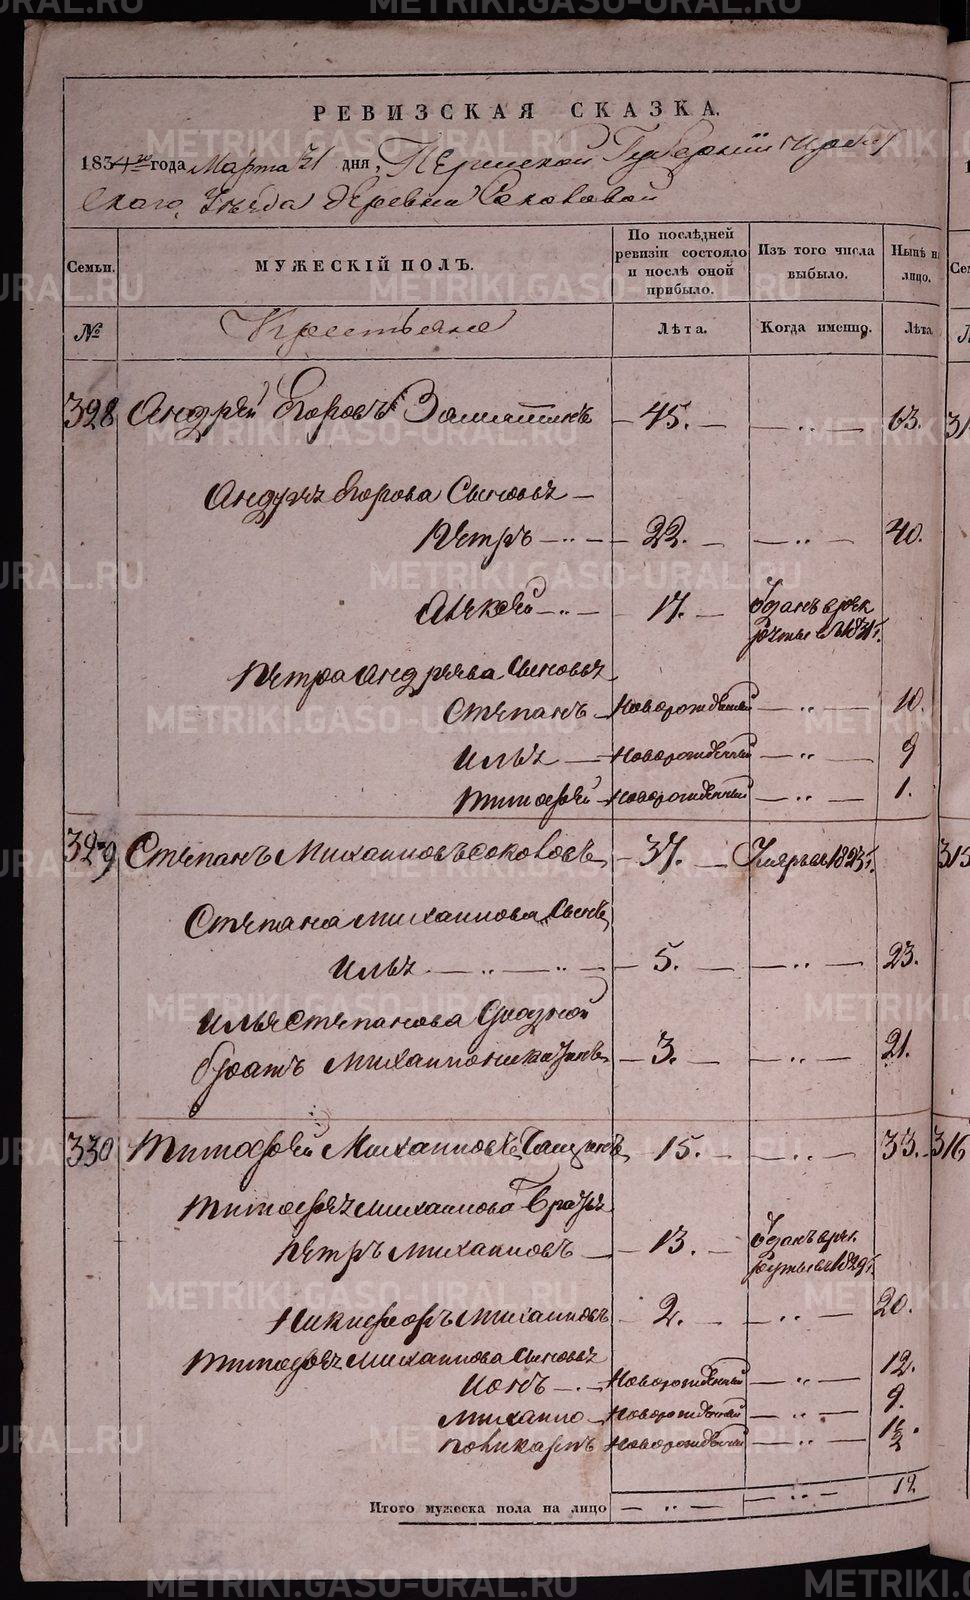 РЕВИЗСКАЯ СКАЗКА.
1834го года Марта 31 дня, Пермской Губернии Ирбит
скаго, Уѣзда деревни Соколовой
Семьи. МУЖЕСКІЙ ПОЛЪ. По послѣдней ревизіи состояло и послѣ оной прибыло. Изъ того числа выбыло. Нынѣ на лицо.
№ Крестьяне Лѣта. Когда именно. Лѣта
328 Андрей Егоровъ Замятинъ 45. 63.
Андрея Егорова Сыновья
Петръ 22. 40.
Алексѣй 17. Отданъ в рек
руты в 1831 г.
Петра Андреева Сыновья
Степанъ Новорожденный 10.
Илья Новорожденный 9
Тимофей Новорожденный 1.
329 Степанъ Михаиловъ Соколовъ 37. Умеръ въ 1823 г.
Степана Михаилова Сынъ
Илья 5. 23.
Ильи Степанова
братъ Михаило 3. 21.
330 Тимофей Михаиловъ 15. 33.
Тимофея Михаилова Братья
Петръ Михаиловъ 13. Отданъ в рек
руты в 1829 г.
Никифоръ Михаиловъ 2. 20.
Тимофея Михаилова Сыновья
Ионъ Новорожденный 12.
Михаило Новорожденный 9.
Поликарпъ Новорожденный 1 1/2
Итого мужеска пола на лицо 12
METRIKI.GASO-URAL.RU